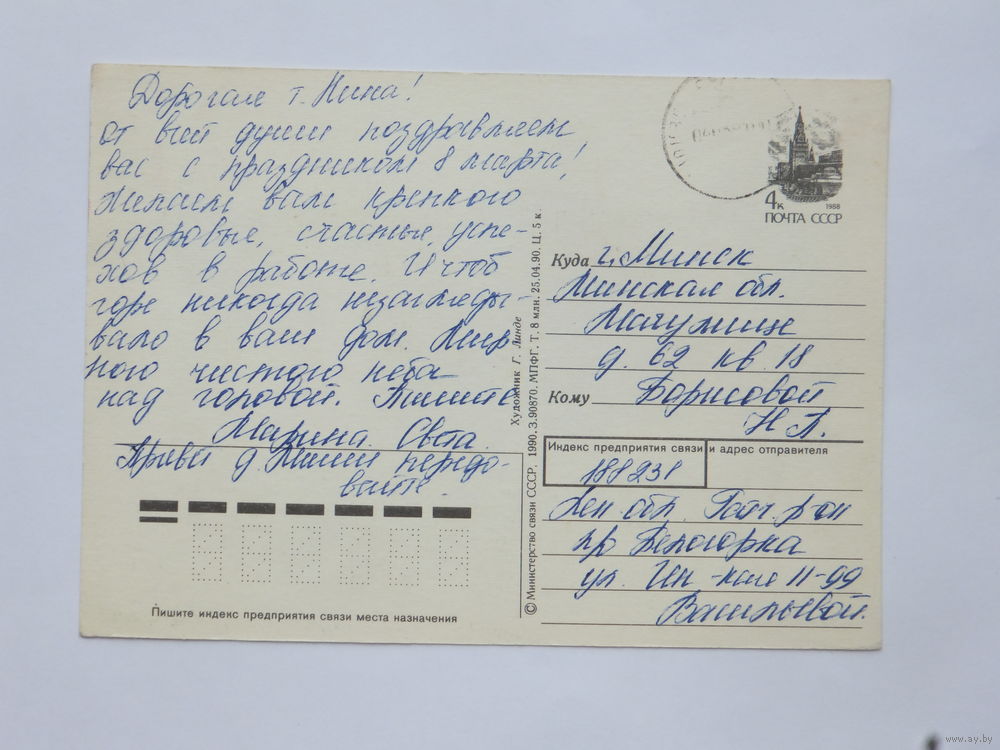 Дорогая т. Нина!
от всей души поздравляем
вас с праздником 8 марта!
Желаем вам крепкого
здоровья, счастья, успе-
хов в работе. И чтоб
горе никогда не загляды-
вало в ваш дом. Мир
ного чистого неба
над головой. Пишите
Марина. Света.
Привет д. Мише передо-
вайте.
Пишите индекс предприятия связи места назначения
Художник Г. Линде
© Министерство связи СССР, 1990. З.90870. МПФГ. Т. 8 млн. 25.04.90. Ц. 5 к.
4к
1988
ПОЧТА СССР
Куда г. Минск
Минская обл.
д. 62 кв. 18
Кому Борисовой
Н П.
Индекс предприятия связи и адрес отправителя
188231
Лен обл. Гатч. р-он
Белогорка
ул. 11-99
Васильевой.
www.ay.by